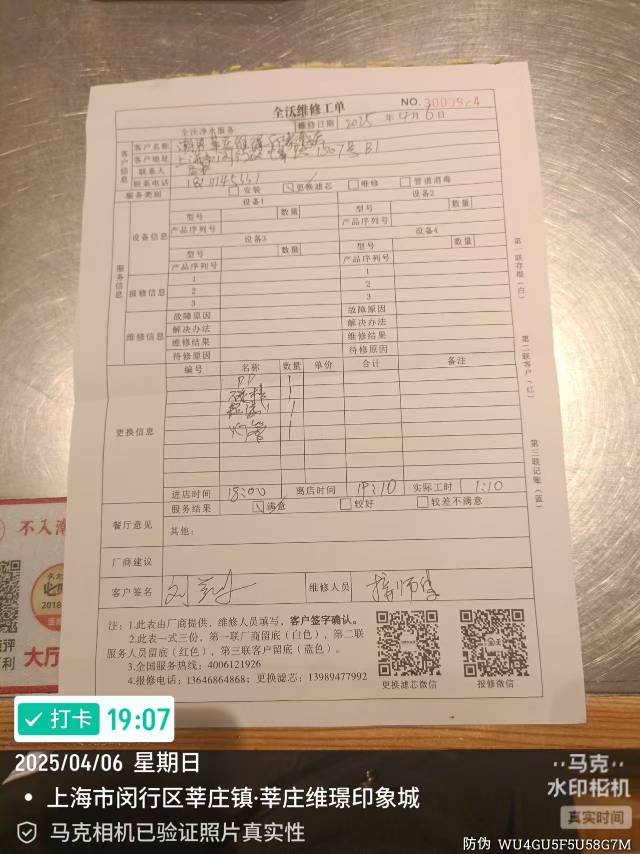 全沃维修工单
NO. 3000924
全沃净水服务
维修日期 2025 年 4 月 6 日
客户信息
客户名称
客户地址 1507号 B1
联系人
联系电话
服务类别 安装 更换滤芯 维修 管道消毒
服务信息
设备信息
设备1 设备2
型号 数量 型号 数量
产品序列号 产品序列号
设备3 设备4
型号 数量 型号 数量
产品序列号 产品序列号
报修信息
1 1
2 2
3 3
维修信息
故障原因 故障原因
解决办法 解决办法
维修结果 维修结果
待修原因 待修原因
更换信息
编号 名称 数量 单价 合计 备注
PP 1
1
1
灯管 1
进店时间 18:00 离店时间 19:10 实际工时 1:10
餐厅意见
服务结果 满意 较好 较差不满意
其他:
厂商建议
客户签名 维修人员
注:1.此表由厂商提供、维修人员填写,客户签字确认。
2.此表一式三份,第一联厂商留底(白色),第二联
服务人员留底(红色),第三联客户留底(蓝色)。
3.全国服务热线:4006121926
4.报修电话:13646864868;更换滤芯:13989477992
更换滤芯微信 报修微信
第一联存根(白)
第二联客户(红)
第三联记账(蓝)
不入
2018
大厅
打卡 19:07
2025/04/06 星期日
上海市闵行区莘庄镇·莘庄维璟印象城
马克相机已验证照片真实性
马克
水印相机
真实时间
防伪 WU4GU5F5U58G7M